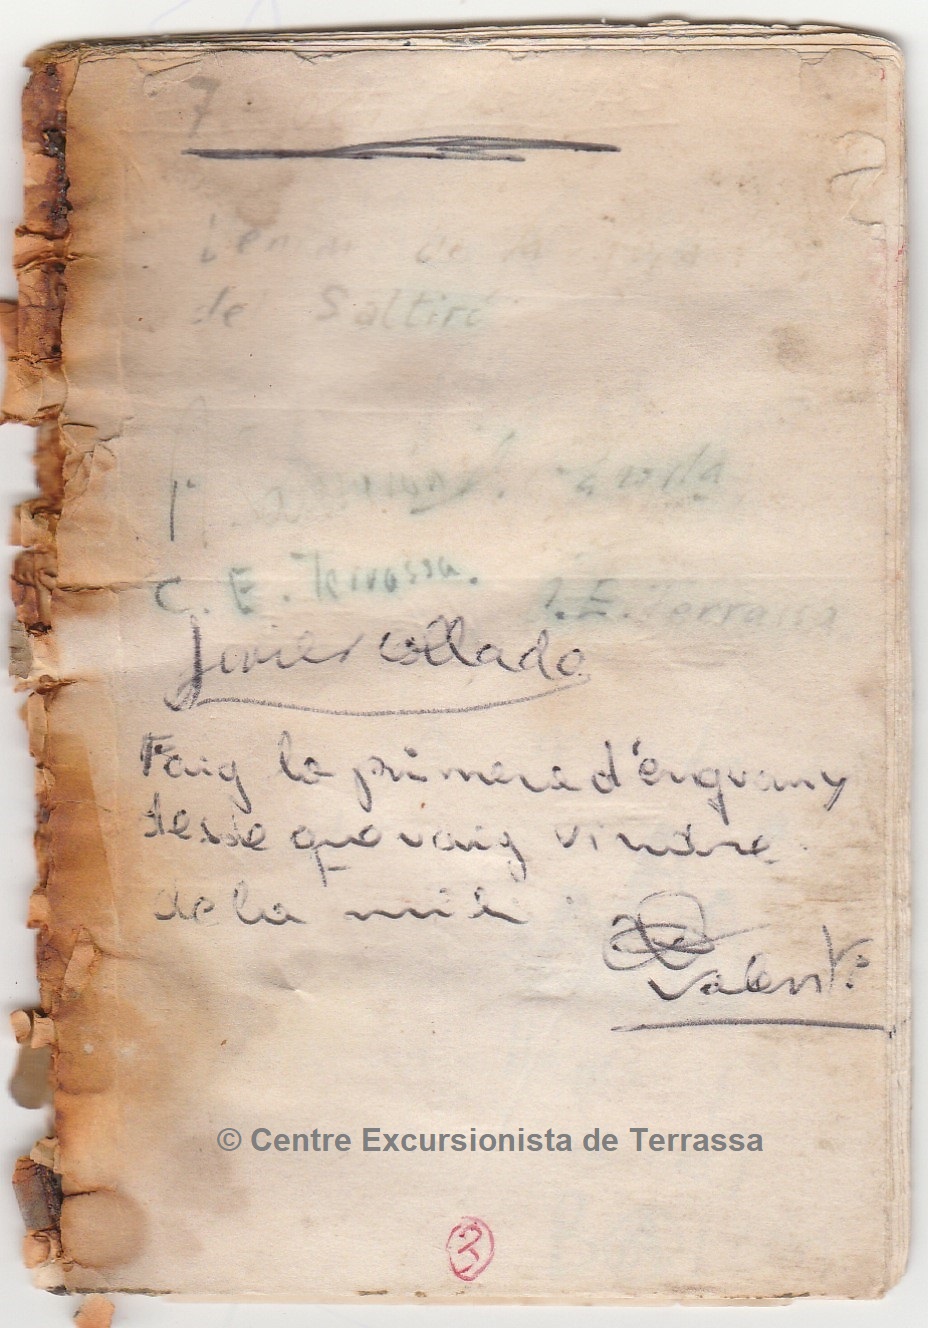 7
de la
del Saltiri
C. E. Terrassa.
C. E. Terrassa
Javier Collado
Faig la primera d'enguany
desde que vaig vindre
de la mili.
Valentí
© Centre Excursionista de Terrassa
2